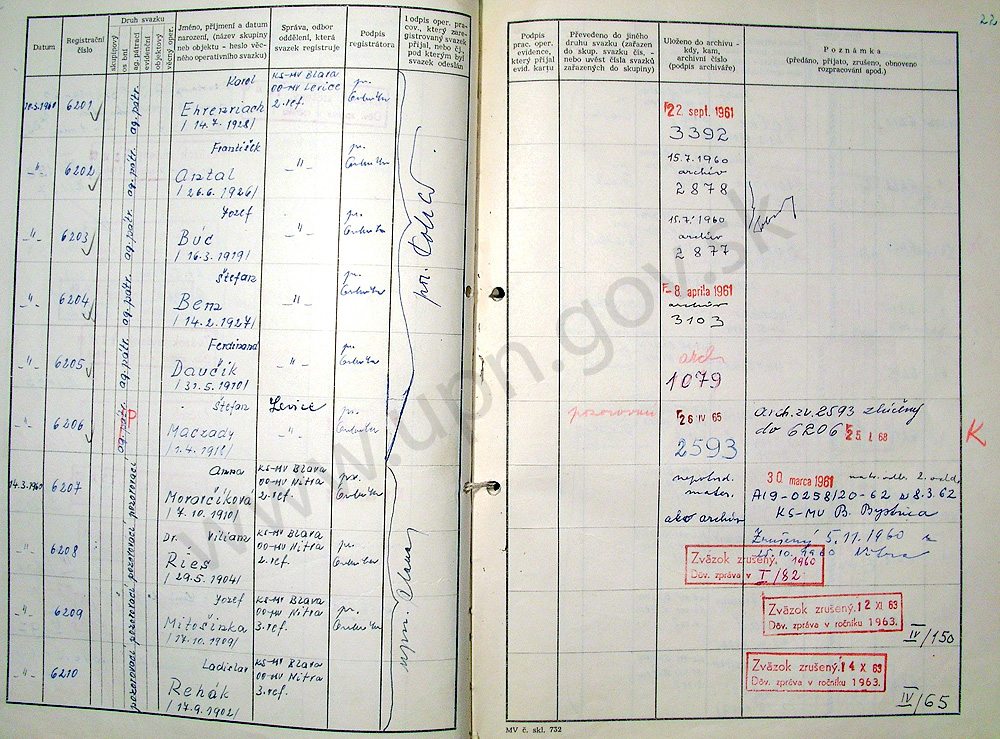 22
Druh svazku
Datum
Registrační
číslo
skupinový
osobní
ag. pátrací
evidenční
objektový
věcný oper.
Jméno, příjmení a datum
narození, (název skupiny
neb objektu - heslo věc-
ného operativního svazku)
Správa, odbor
oddělení, která
svazek registruje
Podpis
registrátora
Podpis oper. prac-
cov., který zare-
gistrovaný svazek
přijal, nebo čj.,
pod kterým byl
svazek odeslán
Podpis
prac. oper.
evidence,
který přijal
evid. kartu
Převedeno do jiného
druhu svazku (zařazen
do skup. svazku čís. -
nebo uvést čísla svazků
zařazených do skupiny)
Uloženo do archivu -
kdy, kam,
archivní číslo
(podpis archiváře)
Poznámka
(předáno, přijato, zrušeno, obnoveno
rozpracování apod.)
6201
ag. pátr.
Karol
Ehrenriach
/ 14.7. 1928/
KS-MV Blava
OO-MV Levice
2. ref.
22. sept. 1961
3392
-"-
6202
ag. pátr.
František
Antal
/ 26.6. 1926/
-"-
15.7.1960
archív
2878
-"-
6203
ag. pátr.
Jozef
Búc
/ 16.3. 1919/
-"-
15.7.1960
archív
2877
-"-
6204
ag. pátr.
Štefan
Benz
/ 14.2. 1927/
-"-
-8. apríla 1961
archív
3103
-"-
6205
ag. pátr.
Ferdinand
Daučík
/ 31.5. 1910/
-"-
arch
1079
-"-
6206
ag. pátr.
P
Štefan
Maczady
/ 1.4. 1911/
Levice
-"-
pozorovací
26 IV 65
2593
arch. zv. 2593 zlúčený
do 6206 25. I. 68
K
14.3.1960
6207
pozorovací
Anna
Moravčíková
/ 7.10. 1910/
KS-MV Blava
OO-MV Nitra
2. ref.
mater.
ako archív
30 marca 1961
A19-0258/20-62 z 8.3.62
KS-MV B. Bystrica
-"-
6208
pozorovací
Dr. Viliam
Ries
/ 29.5. 1904/
KS-MV Blava
OO-MV Nitra
2. ref.
Zrušený 5.11.1960
Nitra
Zväzok zrušený. 1960
Dôv. zpráva v I/82
-"-
6209
pozorovací
Jozef
Mitošinka
/ 17.10. 1909/
KS-MV Blava
OO-MV Nitra
3. ref.
Zväzok zrušený. 12 XI 63
Dôv. zpráva v ročníku 1963.
IV/150
-"-
6210
pozorovací
Ladislav
Rehák
/ 17.9. 1902/
KS-MV Blava
OO-MV Nitra
3. ref.
Zväzok zrušený. 14 X 63
Dôv. zpráva v ročníku 1963.
IV/65
MV č. skl. 732
www.upn.gov.sk